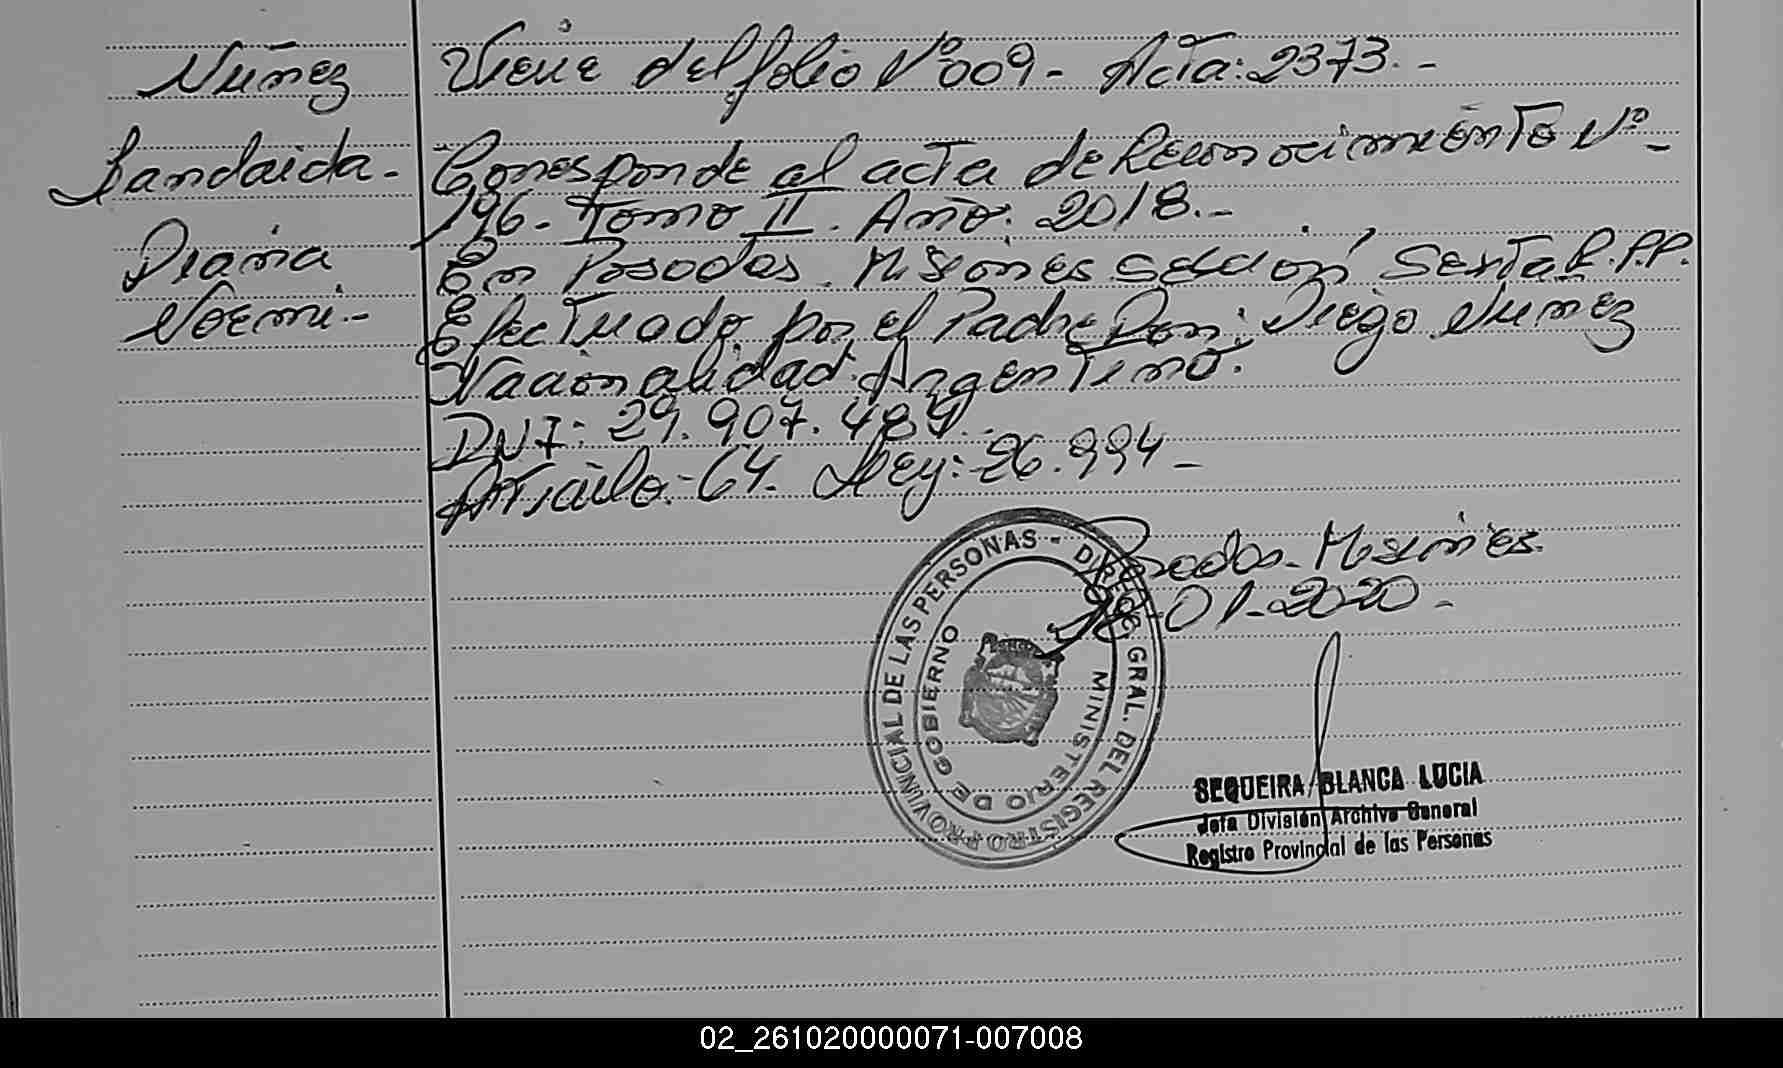 Nuñez
Sandaida.-
Diana
Noemi.-
Viene del folio Nº 009- Acta: 2373.-
Corresponde al acta de Reconocimiento Nº-
196- Tomo II. Año: 2018.-
En Posadas. Misiones sección Sexta R.P.P.
Efectuado por el Padre Don: Diego Nuñez
Nacionalidad Argentino.
DNI: 29.907.484.
Articulo:-64. Ley: 26.994-
Posadas- Misiones.
28-01-2020-
REGISTRO PROVINCIAL DE LAS PERSONAS - DIREC. GRAL. DEL
MINISTERIO DE GOBIERNO
SEQUEIRA BLANCA LUCIA
Jefa División Archivo General
Registro Provincial de las Personas
02_261020000071-007008